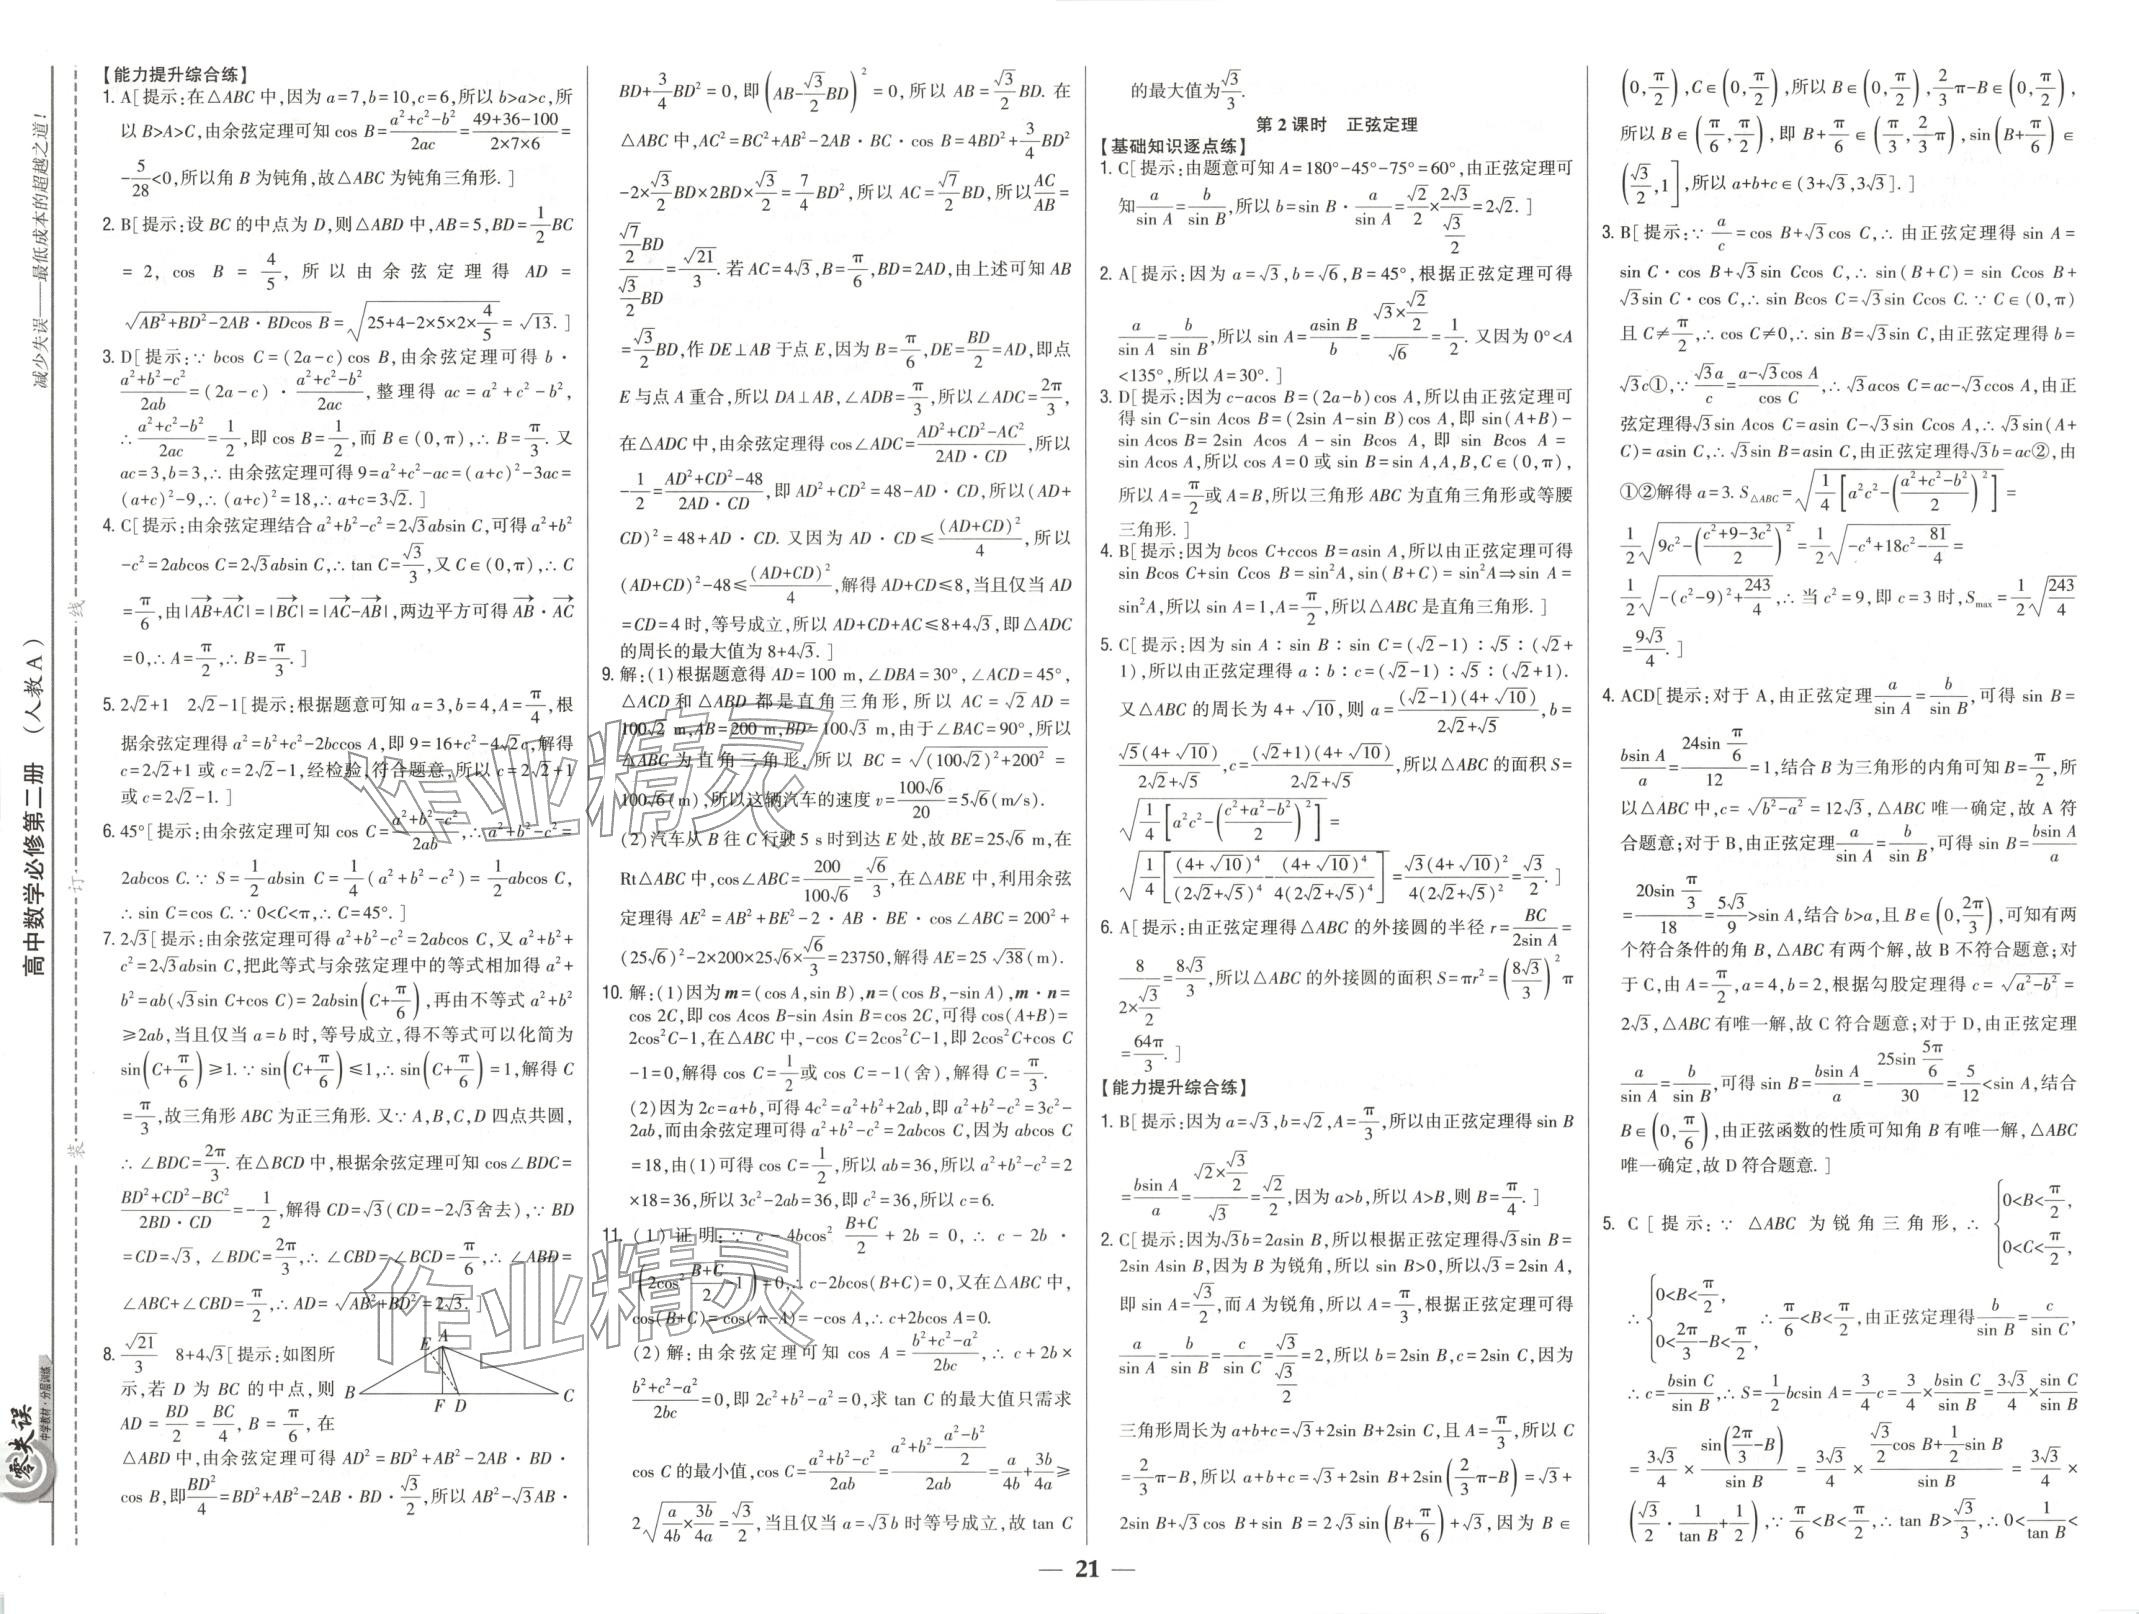 减少失误——最低成本的超越之道!
高中数学必修第二册 (人教A)
零失误
中学教材·分层训练
装
订
线
【能力提升综合练】
1. A[提示:在△ABC中,因为a=7,b=10,c=6,所以b>a>c,所
以B>A>C,由余弦定理可知cos B=(a²+c²-b²)/(2ac)=(49+36-100)/(2×7×6)=
-5/28<0,所以角B为钝角,故△ABC为钝角三角形.]
2. B[提示:设BC的中点为D,则△ABD中,AB=5,BD=1/2BC
=2, cos B=4/5, 所以由余弦定理得 AD=
√(AB²+BD²-2AB·BDcos B)=√(25+4-2×5×2×4/5)=√13.]
3. D[提示:∵bcos C=(2a-c)cos B,由余弦定理可得b·
(a²+b²-c²)/(2ab)=(2a-c)·(a²+c²-b²)/(2ac),整理得ac=a²+c²-b²,
∴(a²+c²-b²)/(2ac)=1/2,即cos B=1/2,而B∈(0,π),∴B=π/3.又
ac=3,b=3,∴由余弦定理可得9=a²+c²-ac=(a+c)²-3ac=
(a+c)²-9,∴(a+c)²=18,∴a+c=3√2.]
4. C[提示:由余弦定理结合a²+b²-c²=2√3absin C,可得a²+b²
-c²=2abcos C=2√3absin C,∴tan C=√3/3,又C∈(0,π),∴C
=π/6,由|AB→+AC→|=|BC→|=|AC→-AB→|,两边平方可得AB→·AC→
=0,∴A=π/2,∴B=π/3.]
5. 2√2+1 2√2-1[提示:根据题意可知a=3,b=4,A=π/4,根
据余弦定理得a²=b²+c²-2bccos A,即9=16+c²-4√2c,解得
c=2√2+1或c=2√2-1,经检验,符合题意,所以c=2√2+1
或c=2√2-1.]
6. 45°[提示:由余弦定理可知cos C=(a²+b²-c²)/(2ab),∴a²+b²-c²=
2abcos C.∵S=1/2absin C=1/4(a²+b²-c²)=1/2abcos C,
∴sin C=cos C.∵0<C<π,∴C=45°.]
7. 2√3[提示:由余弦定理可得a²+b²-c²=2abcos C,又a²+b²+
c²=2√3absin C,把此等式与余弦定理中的等式相加得a²+
b²=ab(√3sin C+cos C)=2absin(C+π/6),再由不等式a²+b²
≥2ab,当且仅当a=b时,等号成立,得不等式可以化简为
sin(C+π/6)≥1.∵sin(C+π/6)≤1,∴sin(C+π/6)=1,解得C
=π/3,故三角形ABC为正三角形.又∵A,B,C,D四点共圆,
∴∠BDC=2π/3.在△BCD中,根据余弦定理可知cos∠BDC=
(BD²+CD²-BC²)/(2BD·CD)=-1/2,解得CD=√3(CD=-2√3舍去),∵BD
=CD=√3, ∠BDC=2π/3,∴∠CBD=∠BCD=π/6,∴∠ABD=
∠ABC+∠CBD=π/2,∴AD=√(AB²+BD²)=2√3.]
8. √21/3 8+4√3[提示:如图所
示,若D为BC的中点,则
AD=BD/2=BC/4,B=π/6,在
A E B F D C
△ABD中,由余弦定理可得AD²=BD²+AB²-2AB·BD·
cos B,即BD²/4=BD²+AB²-2AB·BD·√3/2,所以AB²-√3AB·
BD+3/4BD²=0,即(AB-√3/2BD)²=0,所以AB=√3/2BD.在
△ABC中,AC²=BC²+AB²-2AB·BC·cos B=4BD²+3/4BD²
-2×√3/2BD×2BD×√3/2=7/4BD²,所以AC=√7/2BD,所以AC/AB=
(√7/2BD)/(√3/2BD)=√21/3.若AC=4√3,B=π/6,BD=2AD,由上述可知AB
=√3/2BD,作DE⊥AB于点E,因为B=π/6,DE=BD/2=AD,即点
E与点A重合,所以DA⊥AB,∠ADB=π/3,所以∠ADC=2π/3,
在△ADC中,由余弦定理得cos∠ADC=(AD²+CD²-AC²)/(2AD·CD),所以
-1/2=(AD²+CD²-48)/(2AD·CD),即AD²+CD²=48-AD·CD,所以(AD+
CD)²=48+AD·CD.又因为AD·CD≤(AD+CD)²/4,所以
(AD+CD)²-48≤(AD+CD)²/4,解得AD+CD≤8,当且仅当AD
=CD=4时,等号成立,所以AD+CD+AC≤8+4√3,即△ADC
的周长的最大值为8+4√3.]
9. 解:(1)根据题意得AD=100 m,∠DBA=30°,∠ACD=45°,
△ACD和△ABD都是直角三角形,所以AC=√2AD=
100√2 m,AB=200 m,BD=100√3 m,由于∠BAC=90°,所以
△ABC为直角三角形,所以BC=√((100√2)²+200²)=
100√6(m),所以这辆汽车的速度v=100√6/20=5√6(m/s).
(2)汽车从B往C行驶5 s时到达E处,故BE=25√6 m,在
Rt△ABC中,cos∠ABC=200/(100√6)=√6/3,在△ABE中,利用余弦
定理得AE²=AB²+BE²-2·AB·BE·cos∠ABC=200²+
(25√6)²-2×200×25√6×√6/3=23750,解得AE=25√38(m).
10. 解:(1)因为m=(cos A,sin B),n=(cos B,-sin A),m·n=
cos 2C,即cos Acos B-sin Asin B=cos 2C,可得cos(A+B)=
2cos²C-1,在△ABC中,-cos C=2cos²C-1,即2cos²C+cos C
-1=0,解得cos C=1/2或cos C=-1(舍),解得C=π/3.
(2)因为2c=a+b,可得4c²=a²+b²+2ab,即a²+b²-c²=3c²-
2ab,而由余弦定理可得a²+b²-c²=2abcos C,因为abcos C
=18,由(1)可得cos C=1/2,所以ab=36,所以a²+b²-c²=2
×18=36,所以3c²-2ab=36,即c²=36,所以c=6.
11. (1)证明:∵c-4bcos²(B+C)/2+2b=0,∴c-2b·
(2cos²(B+C)/2-1)=0,∴c-2bcos(B+C)=0,又在△ABC中,
cos(B+C)=cos(π-A)=-cos A,∴c+2bcos A=0.
(2)解:由余弦定理可知cos A=(b²+c²-a²)/(2bc),∴c+2b×
(b²+c²-a²)/(2bc)=0,即2c²+b²-a²=0,求tan C的最大值只需求
cos C的最小值,cos C=(a²+b²-c²)/(2ab)=(a²+b²-(a²-b²)/2)/(2ab)=a/4b+3b/4a≥
2√(a/4b×3b/4a)=√3/2,当且仅当a=√3b时等号成立,故tan C
的最大值为√3/3.
第2课时 正弦定理
【基础知识逐点练】
1. C[提示:由题意可知A=180°-45°-75°=60°,由正弦定理可
知a/sin A=b/sin B,所以b=sin B·a/sin A=√2/2×(2√3)/(√3/2)=2√2.]
2. A[提示:因为a=√3,b=√6,B=45°,根据正弦定理可得
a/sin A=b/sin B,所以sin A=asin B/b=(√3×√2/2)/√6=1/2.又因为0°<A
<135°,所以A=30°.]
3. D[提示:因为c-acos B=(2a-b)cos A,所以由正弦定理可
得sin C-sin Acos B=(2sin A-sin B)cos A,即sin(A+B)-
sin Acos B=2sin Acos A-sin Bcos A,即sin Bcos A=
sin Acos A,所以cos A=0或sin B=sin A,A,B,C∈(0,π),
所以A=π/2或A=B,所以三角形ABC为直角三角形或等腰
三角形.]
4. B[提示:因为bcos C+ccos B=asin A,所以由正弦定理可得
sin Bcos C+sin Ccos B=sin²A,sin(B+C)=sin²A⇒sin A=
sin²A,所以sin A=1,A=π/2,所以△ABC是直角三角形.]
5. C[提示:因为sin A:sin B:sin C=(√2-1):√5:(√2+
1),所以由正弦定理得a:b:c=(√2-1):√5:(√2+1).
又△ABC的周长为4+√10,则a=(√2-1)(4+√10)/(2√2+√5),b=
√5(4+√10)/(2√2+√5),c=(√2+1)(4+√10)/(2√2+√5),所以△ABC的面积S=
√(1/4[a²c²-((c²+a²-b²)/2)²])=
√(1/4[(4+√10)⁴/(2√2+√5)⁴-(4+√10)⁴/(4(2√2+√5)⁴)])=√3(4+√10)²/(4(2√2+√5)²)=√3/2.]
6. A[提示:由正弦定理得△ABC的外接圆的半径r=BC/(2sin A)=
8/(2×√3/2)=8√3/3,所以△ABC的外接圆的面积S=πr²=(8√3/3)²π
=64π/3.]
【能力提升综合练】
1. B[提示:因为a=√3,b=√2,A=π/3,所以由正弦定理得sin B
=bsin A/a=(√2×√3/2)/√3=√2/2,因为a>b,所以A>B,则B=π/4.]
2. C[提示:因为√3b=2asin B,所以根据正弦定理得√3sin B=
2sin Asin B,因为B为锐角,所以sin B>0,所以√3=2sin A,
即sin A=√3/2,而A为锐角,所以A=π/3,根据正弦定理可得
a/sin A=b/sin B=c/sin C=√3/(√3/2)=2,所以b=2sin B,c=2sin C,因为
三角形周长为a+b+c=√3+2sin B+2sin C,且A=π/3,所以C
=2/3π-B,所以a+b+c=√3+2sin B+2sin(2/3π-B)=√3+
2sin B+√3cos B+sin B=2√3sin(B+π/6)+√3,因为B∈
(0,π/2),C∈(0,π/2),所以B∈(0,π/2),2/3π-B∈(0,π/2),
所以B∈(π/6,π/2),即B+π/6∈(π/3,2/3π),sin(B+π/6)∈
(√3/2,1],所以a+b+c∈(3+√3,3√3].]
3. B[提示:∵a/c=cos B+√3cos C,∴由正弦定理得sin A=
sin C·cos B+√3sin Ccos C,∴sin(B+C)=sin Ccos B+
√3sin C·cos C,∴sin Bcos C=√3sin Ccos C.∵C∈(0,π)
且C≠π/2,∴cos C≠0,∴sin B=√3sin C,由正弦定理得b=
√3c①,∵√3a/c=(a-√3cos A)/cos C,∴√3acos C=ac-√3ccos A,由正
弦定理得√3sin Acos C=asin C-√3sin Ccos A,∴√3sin(A+
C)=asin C,∴√3sin B=asin C,由正弦定理得√3b=ac②,由
①②解得a=3.S△ABC=√(1/4[a²c²-((a²+c²-b²)/2)²])=
1/2√(9c²-((c²+9-3c²)/2)²)=1/2√(-c⁴+18c²-81/4)=
1/2√(-(c²-9)²+243/4),∴当c²=9,即c=3时,Smax=1/2√(243/4)
=9√3/4.]
4. ACD[提示:对于A,由正弦定理a/sin A=b/sin B,可得sin B=
bsin A/a=(24sin π/6)/12=1,结合B为三角形的内角可知B=π/2,所
以△ABC中,c=√(b²-a²)=12√3,△ABC唯一确定,故A符
合题意;对于B,由正弦定理a/sin A=b/sin B,可得sin B=bsin A/a
=(20sin π/3)/18=5√3/9>sin A,结合b>a,且B∈(0,2π/3),可知有两
个符合条件的角B,△ABC有两个解,故B不符合题意;对
于C,由A=π/2,a=4,b=2,根据勾股定理得c=√(a²-b²)=
2√3,△ABC有唯一解,故C符合题意;对于D,由正弦定理
a/sin A=b/sin B,可得sin B=bsin A/a=(25sin 5π/6)/30=5/12<sin A,结合
B∈(0,π/6),由正弦函数的性质可知角B有唯一解,△ABC
唯一确定,故D符合题意.]
5. C[提示:∵△ABC为锐角三角形,∴{0<B<π/2, 0<C<π/2,
∴{0<B<π/2, 0<2π/3-B<π/2, ∴π/6<B<π/2,由正弦定理得b/sin B=c/sin C,
∴c=bsin C/sin B,∴S=1/2bcsin A=3/4c=3/4×bsin C/sin B=3√3/4×sin C/sin B
=3√3/4×sin(2π/3-B)/sin B=3√3/4×(√3/2cos B+1/2sin B)/sin B=3√3/4×
(√3/2·1/tan B+1/2),∵π/6<B<π/2,∴tan B>√3/3,∴0<1/tan B<
— 21 —
作业精灵
作业精灵